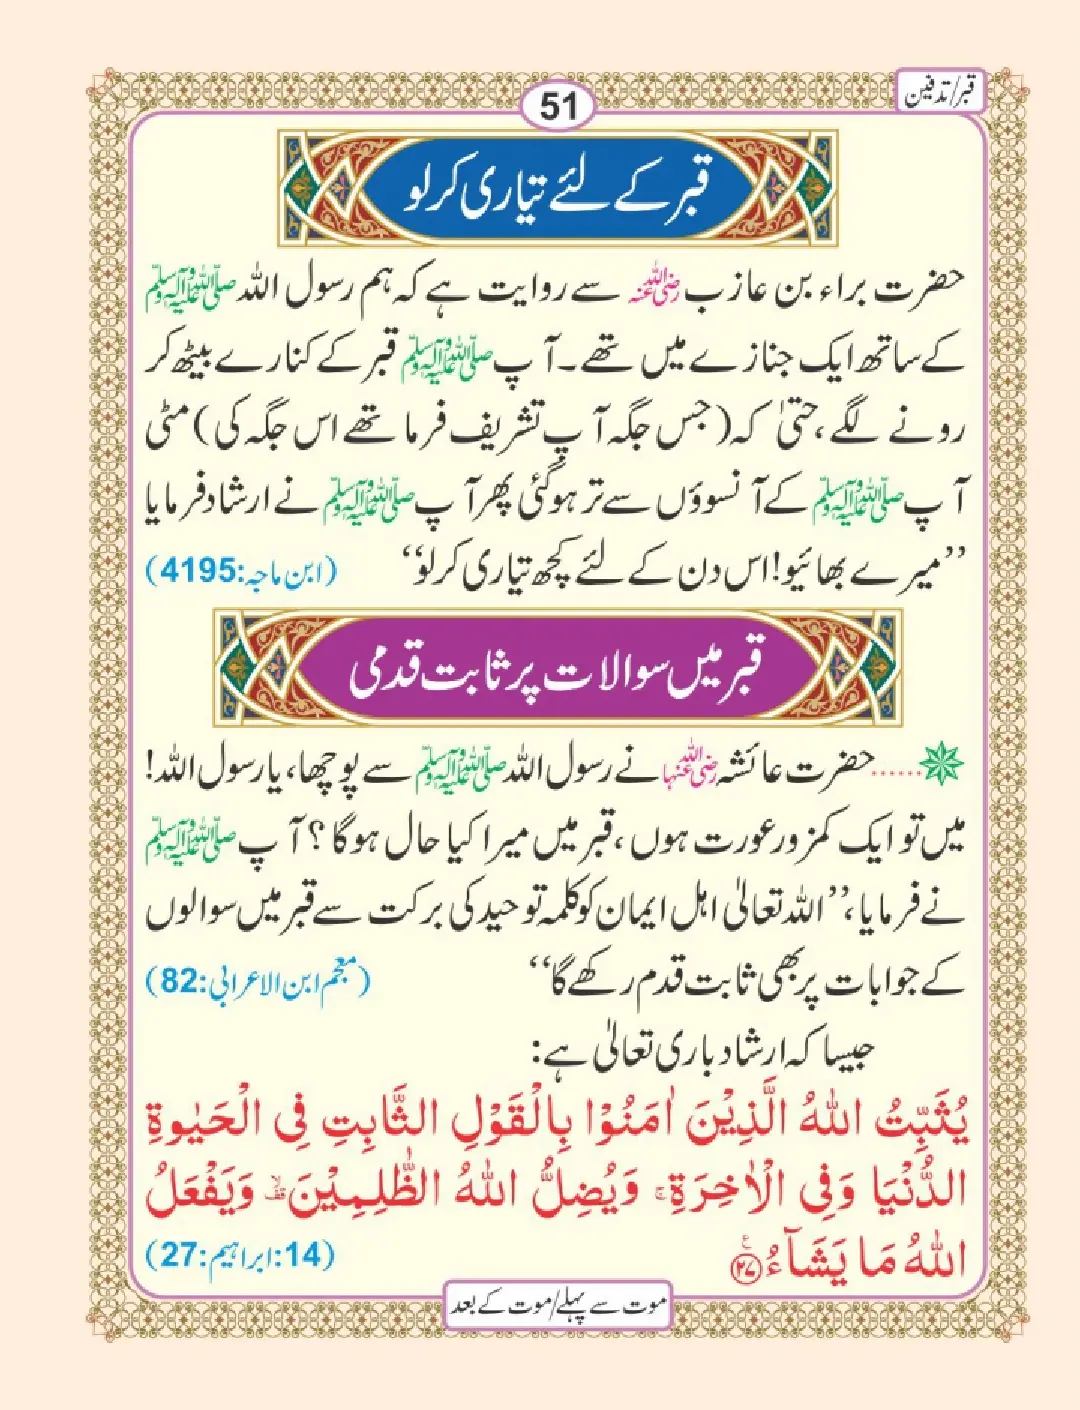 قبر/تدفین
51
قبر کے لئے تیاری کرلو
حضرت براء بن عازب رضی اللہ عنہ سے روایت ہے کہ ہم رسول اللہ صلی اللہ علیہ وآلہ وسلم
کے ساتھ ایک جنازے میں تھے۔ آپ صلی اللہ علیہ وآلہ وسلم قبر کے کنارے بیٹھ کر
رونے لگے، حتیٰ کہ (جس جگہ آپ تشریف فرما تھے اس جگہ کی) مٹی
آپ صلی اللہ علیہ وآلہ وسلم کے آنسوؤں سے تر ہوگئی پھر آپ صلی اللہ علیہ وآلہ وسلم نے ارشاد فرمایا
’’میرے بھائیو! اس دن کے لئے کچھ تیاری کرلو‘‘ (ابن ماجہ:4195)
قبر میں سوالات پر ثابت قدمی
......حضرت عائشہ رضی اللہ عنہا نے رسول اللہ صلی اللہ علیہ وآلہ وسلم سے پوچھا، یا رسول اللہ!
میں تو ایک کمزور عورت ہوں، قبر میں میرا کیا حال ہوگا؟ آپ صلی اللہ علیہ وآلہ وسلم
نے فرمایا، ’’اللہ تعالیٰ اہل ایمان کو کلمہ توحید کی برکت سے قبر میں سوالوں
کے جوابات پر بھی ثابت قدم رکھے گا‘‘ (معجم ابن الاعرابی:82)
جیسا کہ ارشاد باری تعالیٰ ہے:
يُثَبِّتُ اللهُ الَّذِيْنَ اٰمَنُوْا بِالْقَوْلِ الثَّابِتِ فِي الْحَيٰوةِ
الدُّنْيَا وَفِي الْاٰخِرَةِ ۚ وَيُضِلُّ اللهُ الظّٰلِمِيْنَ ۙ وَيَفْعَلُ
اللهُ مَا يَشَآءُ ۝۲۷ (14:ابراہیم:27)
موت سے پہلے/موت کے بعد